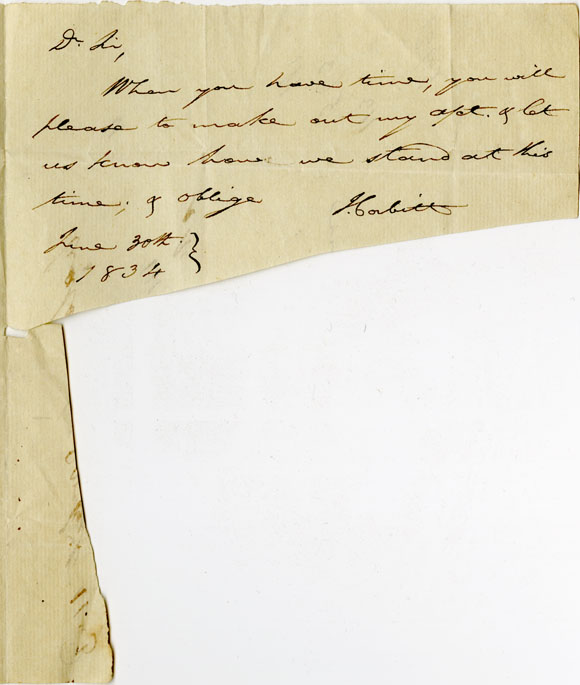 Dr Sir,
When you have time, you will
please to make out my apt. & let
us know how we stand at this
time; & oblige J. Corbitt
June 30th
1834